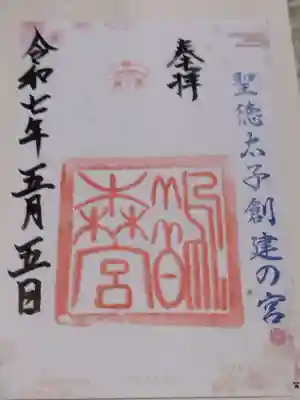 聖徳太子創建の宮
奉拝
鵲
森宮
令和七年五月五日